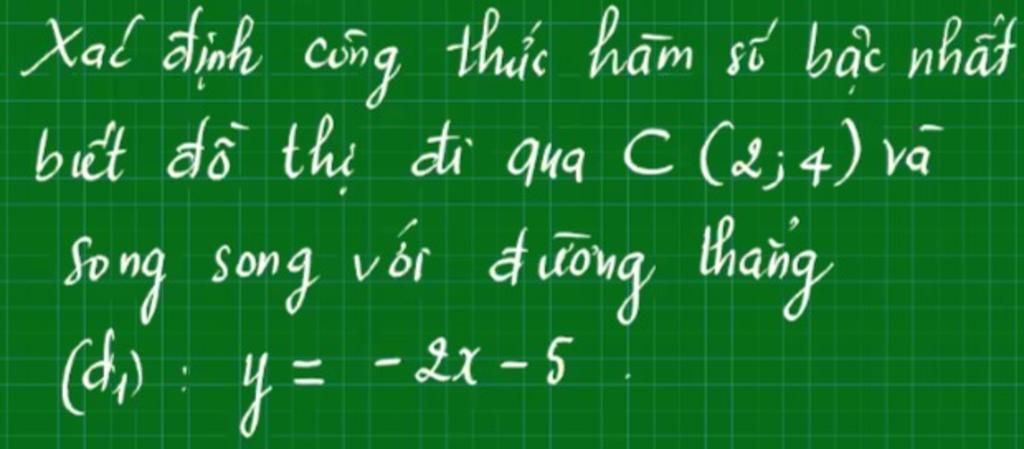 Xác định công thức hàm số bậc nhất
biết đồ thị đi qua C (2; 4) và
song song với đường thẳng
(d₁) : y = -2x - 5 .